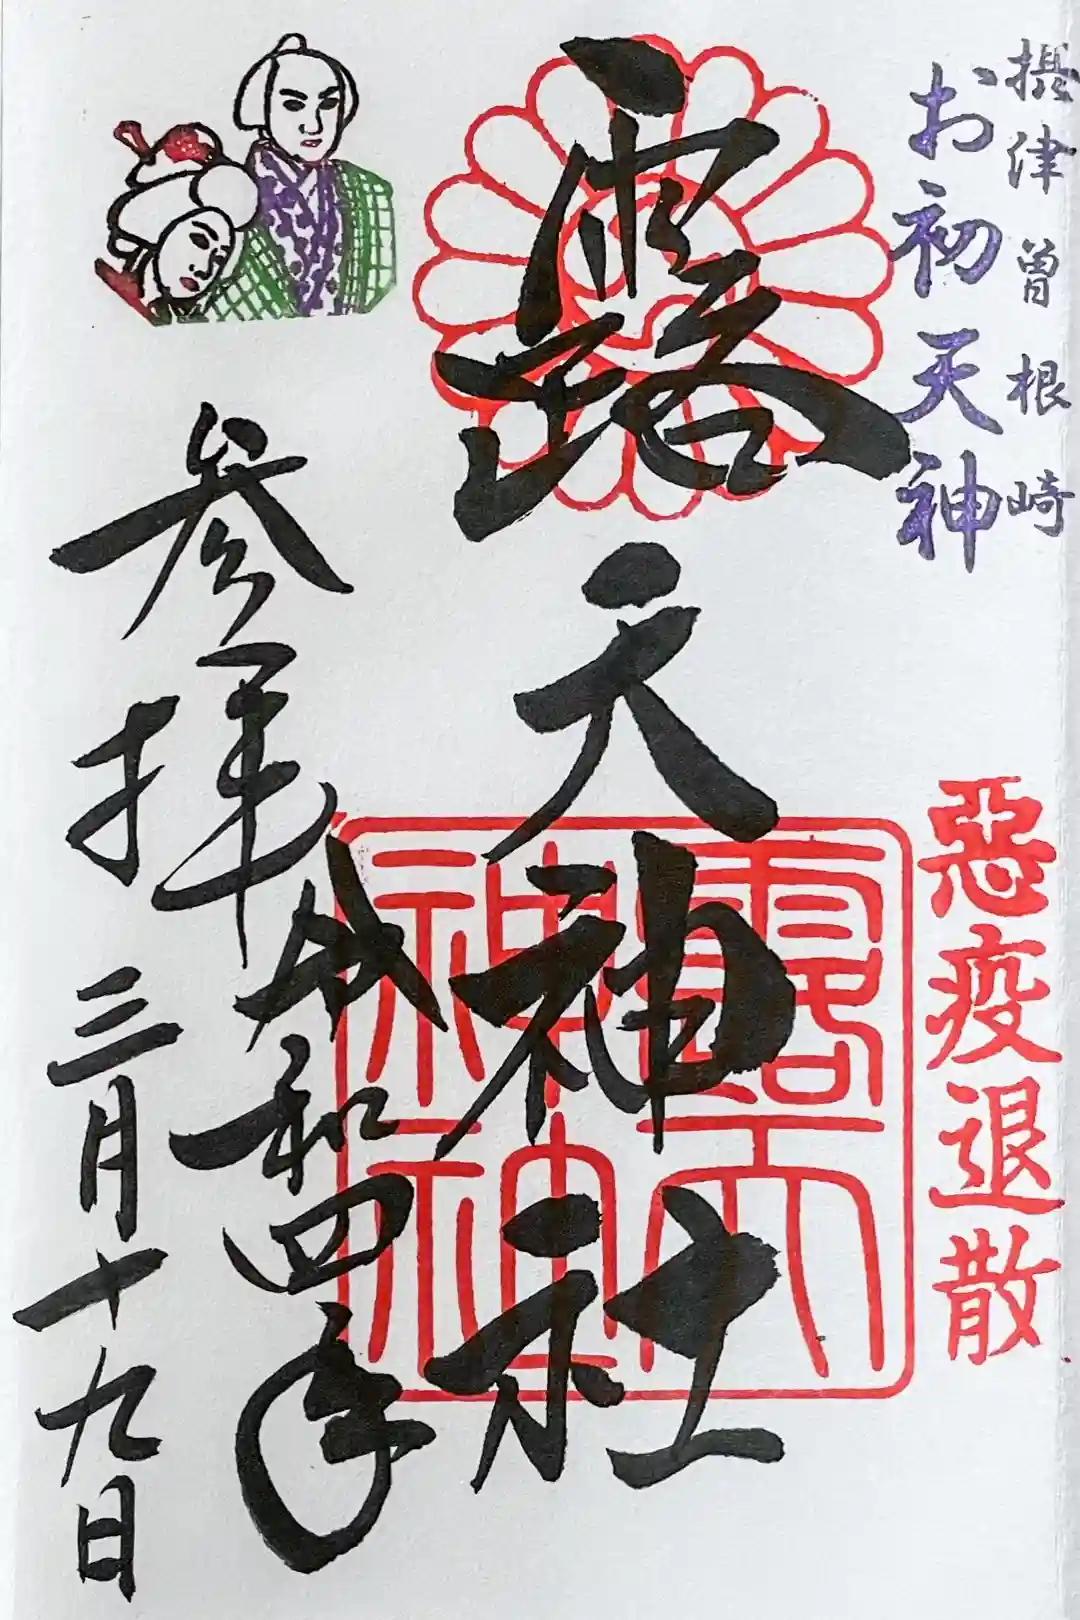 摂津曽根崎
お初天神
悪疫退散
露天神社
露天神社
参拝
令和四年
三月十九日